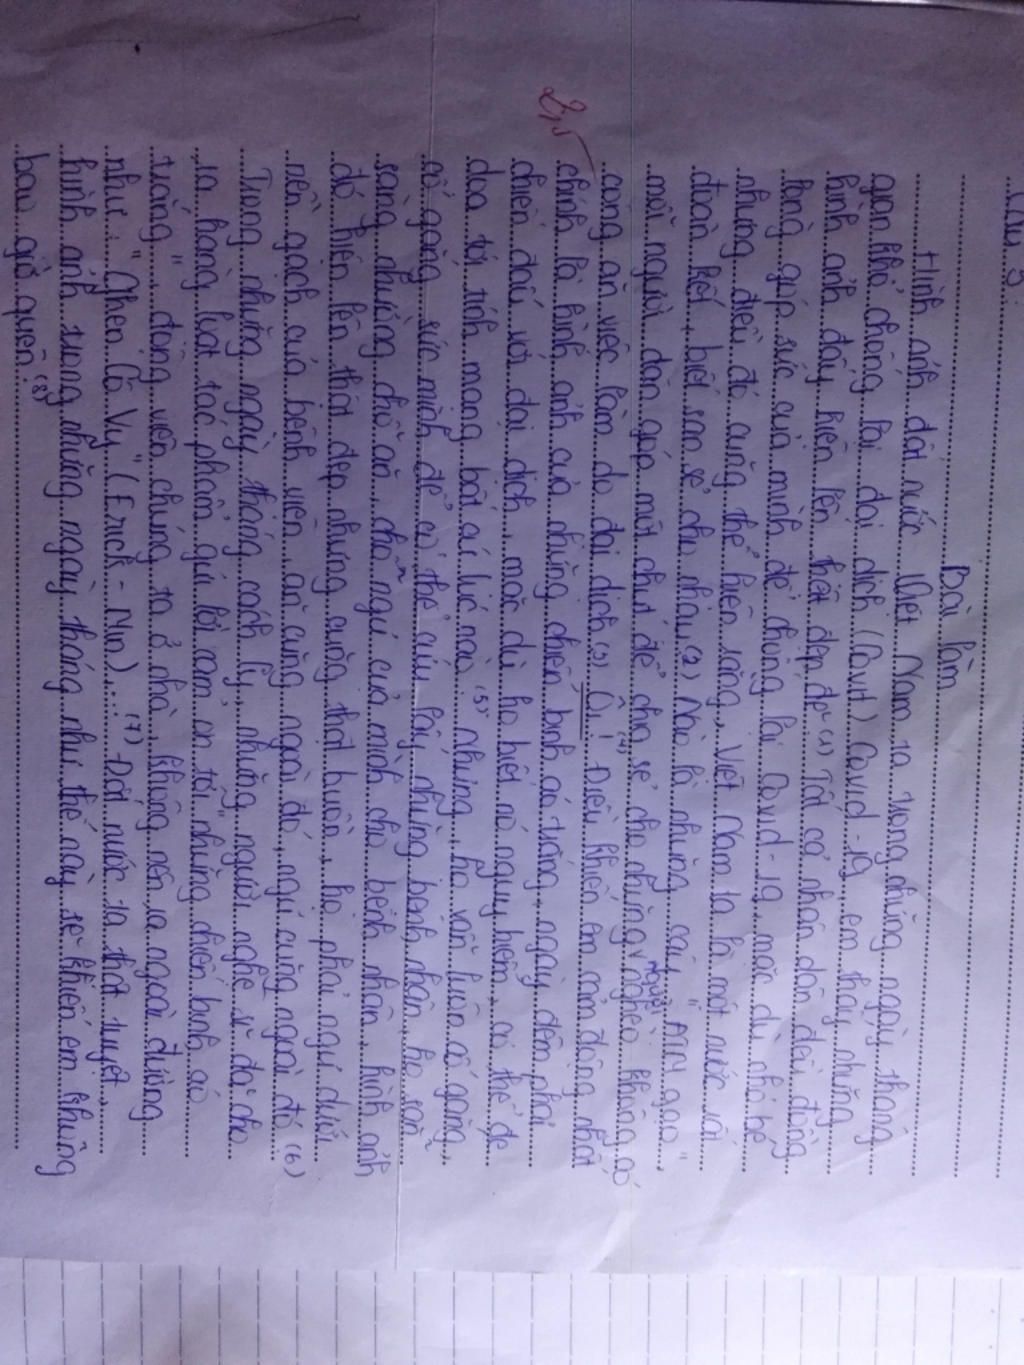 Câu 3:
Bài làm
Hình ảnh đất nước Việt Nam ta trong những ngày tháng
gian khổ chống lại đại dịch (Covit) Covid-19, em thấy những
hình ảnh đấy hiện lên thật đẹp đẽ. (1) Tất cả nhân dân đều đồng
lòng góp sức của mình để chống lại Covid-19, mặc dù nhỏ bé
nhưng điều đó cũng thể hiện rằng, Việt Nam ta là một nước rất
đoàn kết, biết san sẻ cho nhau. (2) Nào là những cây "ATM gạo",
mỗi người dân góp một chút để chia sẻ cho những người nghèo không có
công ăn việc làm do đại dịch. (3) Ôi! (4) Điều khiến em cảm động nhất
2,5
chính là hình ảnh của những chiến binh áo trắng, ngày đêm phải
chiến đấu với đại dịch, mặc dù họ biết nó nguy hiểm, có thể đe
dọa tới tính mạng bất cứ lúc nào. (5) Nhưng, họ vẫn luôn cố gắng,
cố gắng sức mình để có thể cứu lấy những bệnh nhân, họ sẵn
sàng nhường chỗ ăn, chỗ ngủ của mình cho bệnh nhân, hình ảnh
đó hiện lên thật đẹp nhưng cũng thật buồn, họ phải ngủ dưới
nền gạch của bệnh viện, ăn cũng ngoài đó, ngủ cũng ngoài đó. (6)
Trong những ngày tháng cách ly, những người nghệ sĩ đã cho
ra hàng loạt tác phẩm gửi lời cảm ơn tới "những chiến binh áo
trắng", động viên chúng ta ở nhà, không nên ra ngoài đường
như: "Ghen Cô Vy" (Erick - Min),... (7) Đất nước ta thật tuyệt,
hình ảnh trong những ngày tháng như thế này sẽ khiến em không
bao giờ quên. (8)